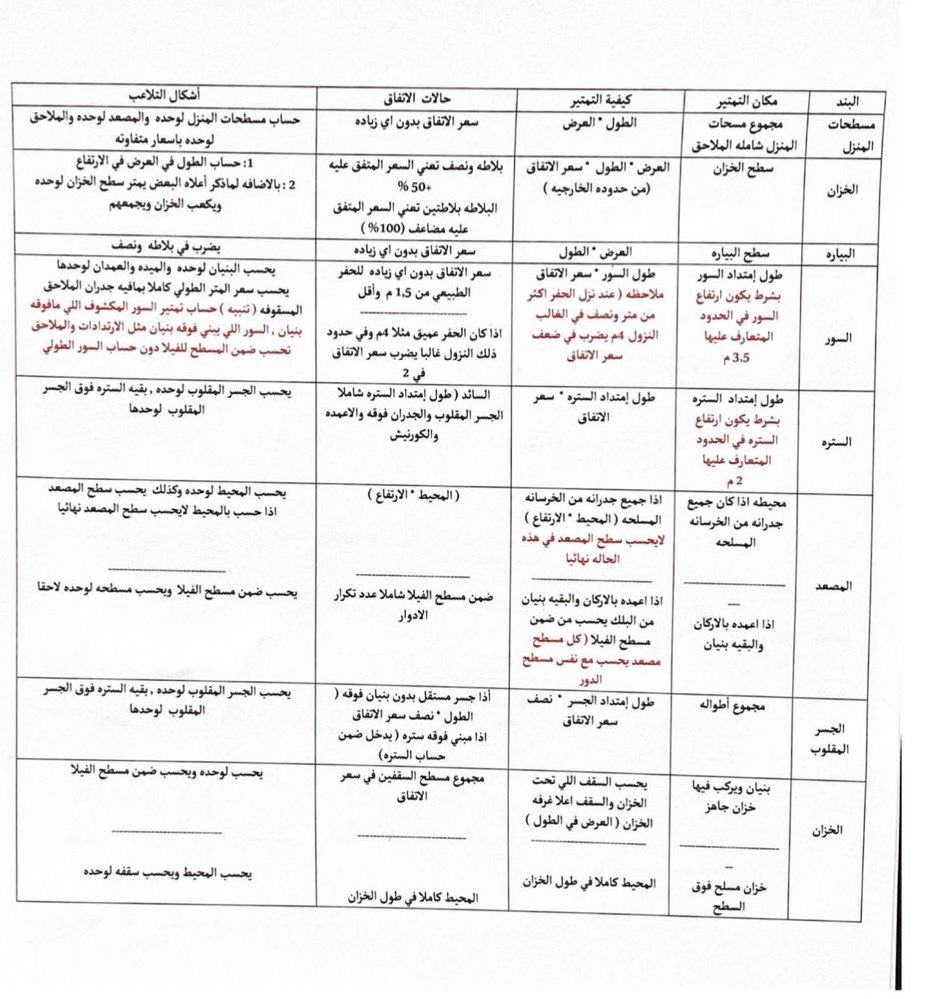 البند
مكان التمتير
كيفية التمتير
حالات الاتفاق
أشكال التلاعب
مسطحات
المنزل
مجموع مسحات
المنزل شامله الملاحق
الطول * العرض
سعر الاتفاق بدون اي زياده
حساب مسطحات المنزل لوحده والمصعد لوحده والملاحق
لوحده باسعار متفاوته
الخزان
سطح الخزان
العرض * الطول * سعر الاتفاق
(من حدوده الخارجيه )
بلاطه ونصف تعني السعر المتفق عليه
+50 %
البلاطه بلاطتين تعني السعر المتفق
عليه مضاعف (100% )
1: حساب الطول في العرض في الارتفاع
2 : بالاضافه لماذكر أعلاه البعض يمتر سطح الخزان لوحده
ويكعب الخزان ويجمعهم
البياره
سطح البياره
العرض * الطول
سعر الاتفاق بدون اي زياده
يضرب في بلاطه ونصف
السور
طول إمتداد السور
بشرط يكون ارتفاع
السور في الحدود
المتعارف عليها
3.5 م
طول السور * سعر الاتفاق
ملاحظه ( عند نزل الحفر اكثر
من متر ونصف في الغالب
النزول 4م يضرب في ضعف
سعر الاتفاق
سعر الاتفاق بدون اي زياده للحفر
الطبيعي من 1,5 م وأقل
---------------------
اذا كان الحفر عميق مثلا 4م وفي حدود
ذلك النزول غالبا يضرب سعر الاتفاق
في 2
يحسب البنيان لوحده والميده والعمدان لوحدها
يحسب سعر المتر الطولي كاملا بمافيه جدران الملاحق
المسقوفه ( تنبيه ) حساب تمتير السور المكشوف اللي مافوقه
بنيان , السور اللي يبني فوقه بنيان مثل الارتدادات والملاحق
تحسب ضمن المسطح للفيلا دون حساب السور الطولي
الستره
طول إمتداد الستره
بشرط يكون ارتفاع
الستره في الحدود
المتعارف عليها
2 م
طول إمتداد الستره * سعر
الاتفاق
السائد ( طول إمتداد الستره شاملا
الجسر المقلوب والجدران فوقه والاعمده
والكورنيش
يحسب الجسر المقلوب لوحده , بقيه الستره فوق الجسر
المقلوب لوحدها
المصعد
محيطه اذا كان جميع
جدرانه من الخرسانه
المسلحه
---------------------
--
اذا اعمده بالاركان
والبقيه بنيان
اذا جميع جدرانه من الخرسانه
المسلحه ( المحيط * الارتفاع )
لايحسب سطح المصعد في هذه
الحاله نهائيا
---------------------
اذا اعمده بالاركان والبقيه بنيان
من البلك يحسب من ضمن
مسطح الفيلا ( كل مسطح
مصعد يحسب مع نفس مسطح
الدور
( المحيط * الارتفاع )
---------------------
ضمن مسطح الفيلا شاملا عدد تكرار
الادوار
يحسب المحيط لوحده وكذلك يحسب سطح المصعد
اذا حسب بالمحيط لايحسب سطح المصعد نهائيا
---------------------
يحسب ضمن مسطح الفيلا ويحسب مسطحه لوحده لاحقا
الجسر
المقلوب
مجموع أطواله
طول إمتداد الجسر * نصف
سعر الاتفاق
أذا جسر مستقل بدون بنيان فوقه (
الطول * نصف سعر الاتفاق
اذا مبني فوقه ستره ( يدخل ضمن
حساب الستره)
يحسب الجسر المقلوب لوحده , بقيه الستره فوق الجسر
المقلوب لوحدها
الخزان
بنيان ويركب فيها
خزان جاهز
---------------------
--
خزان مسلح فوق
السطح
يحسب السقف اللي تحت
الخزان والسقف اعلا غرفه
الخزان ( العرض في الطول )
---------------------
المحيط كاملا في طول الخزان
مجموع مسطح السقفين في سعر
الاتفاق
---------------------
المحيط كاملا في طول الخزان
يحسب لوحده ويحسب ضمن مسطح الفيلا
---------------------
يحسب المحيط ويحسب سقفه لوحده